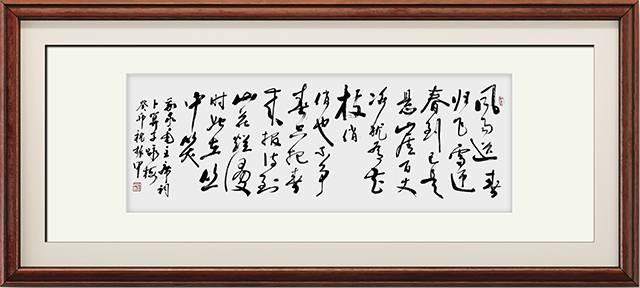 风雨送春
归飞雪迎
春到已是
悬崖百丈
冰犹有花
枝俏
俏也不争
春只把春
来报待到
山花烂漫
时她在丛
中笑
毛主席词
卜算子咏梅
癸卯